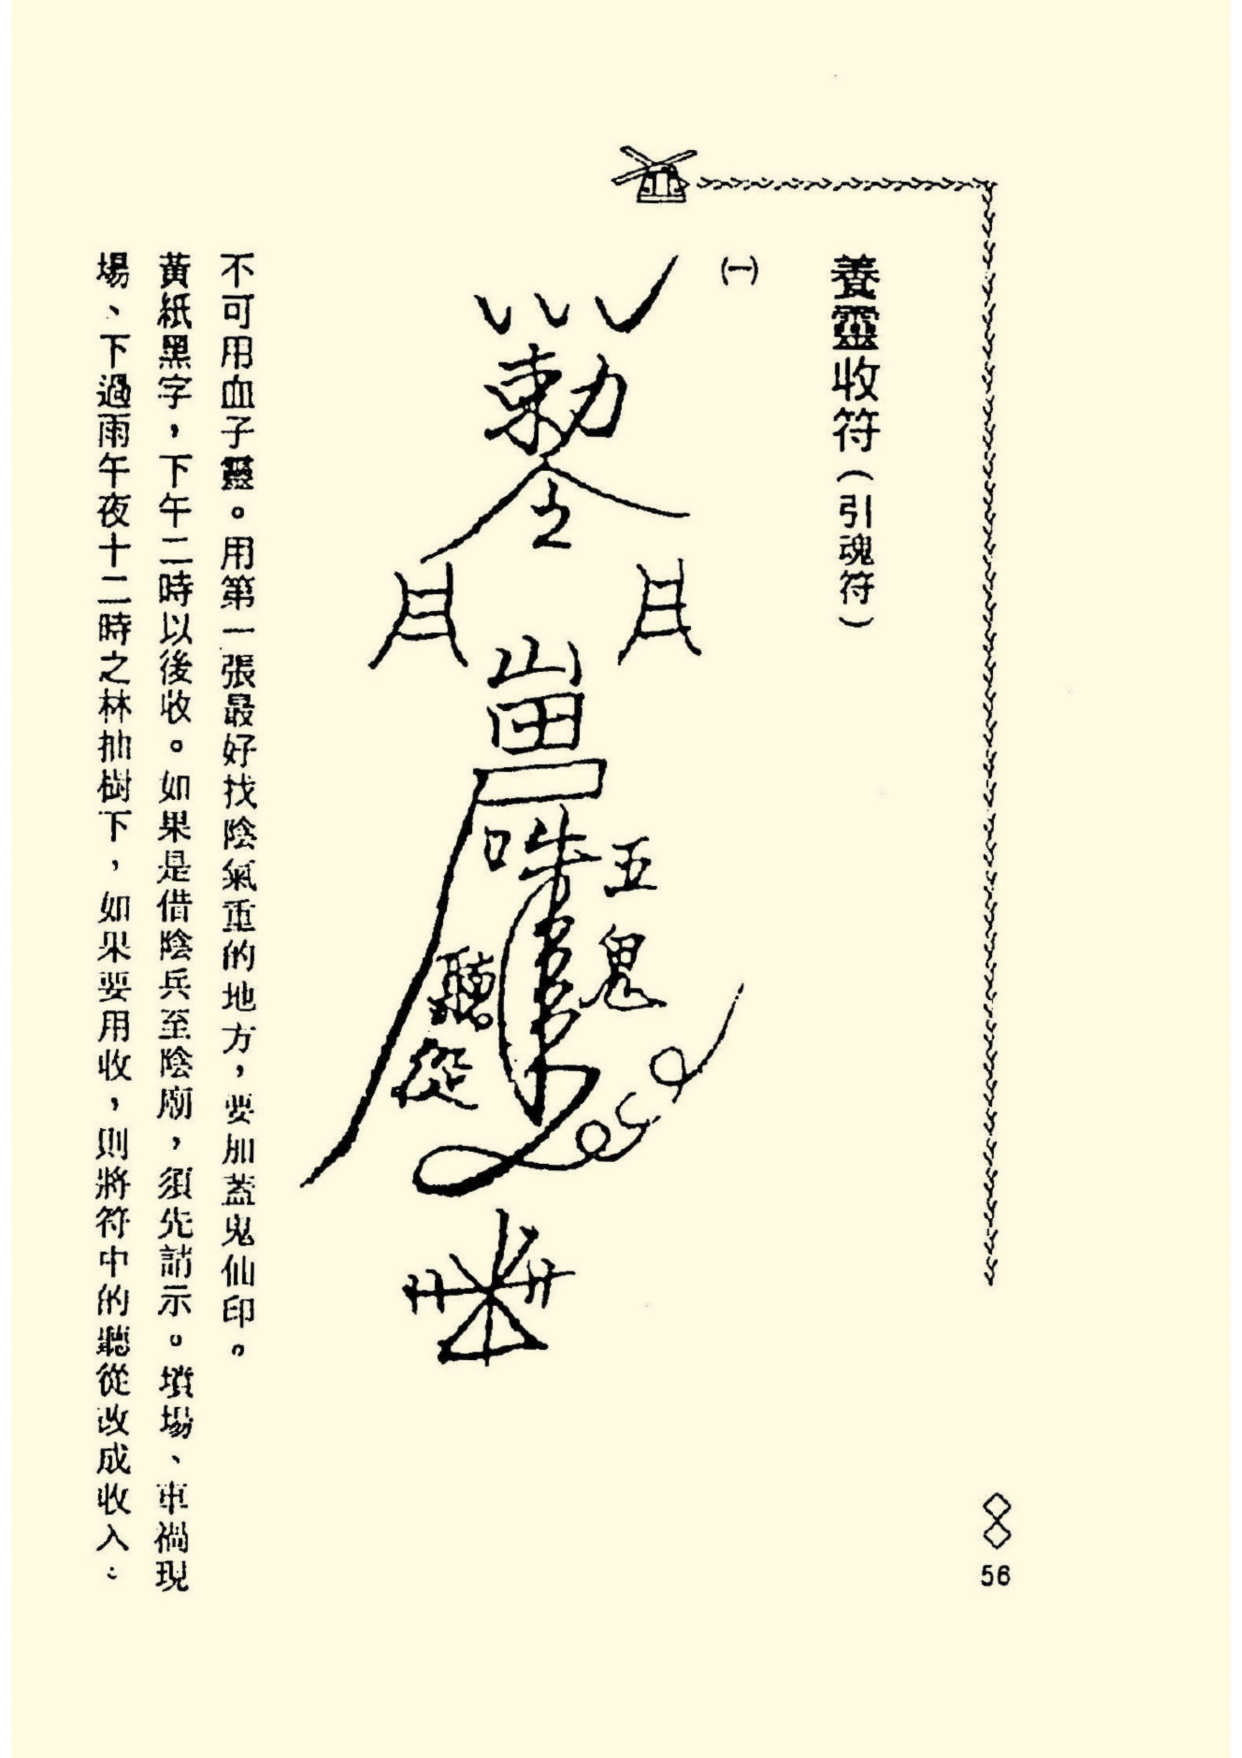 養靈收符（引魂符）
㈠
勅令
月 月
五鬼
聽從
不可用血子靈。用第一張最好找陰氣重的地方，要加蓋鬼仙印。
黃紙黑字，下午二時以後收。如果是借陰兵至陰廟，須先請示。墳場、車禍現
場、下過雨午夜十二時之林抽樹下，如果要用收，則將符中的聽從改成收入。
56